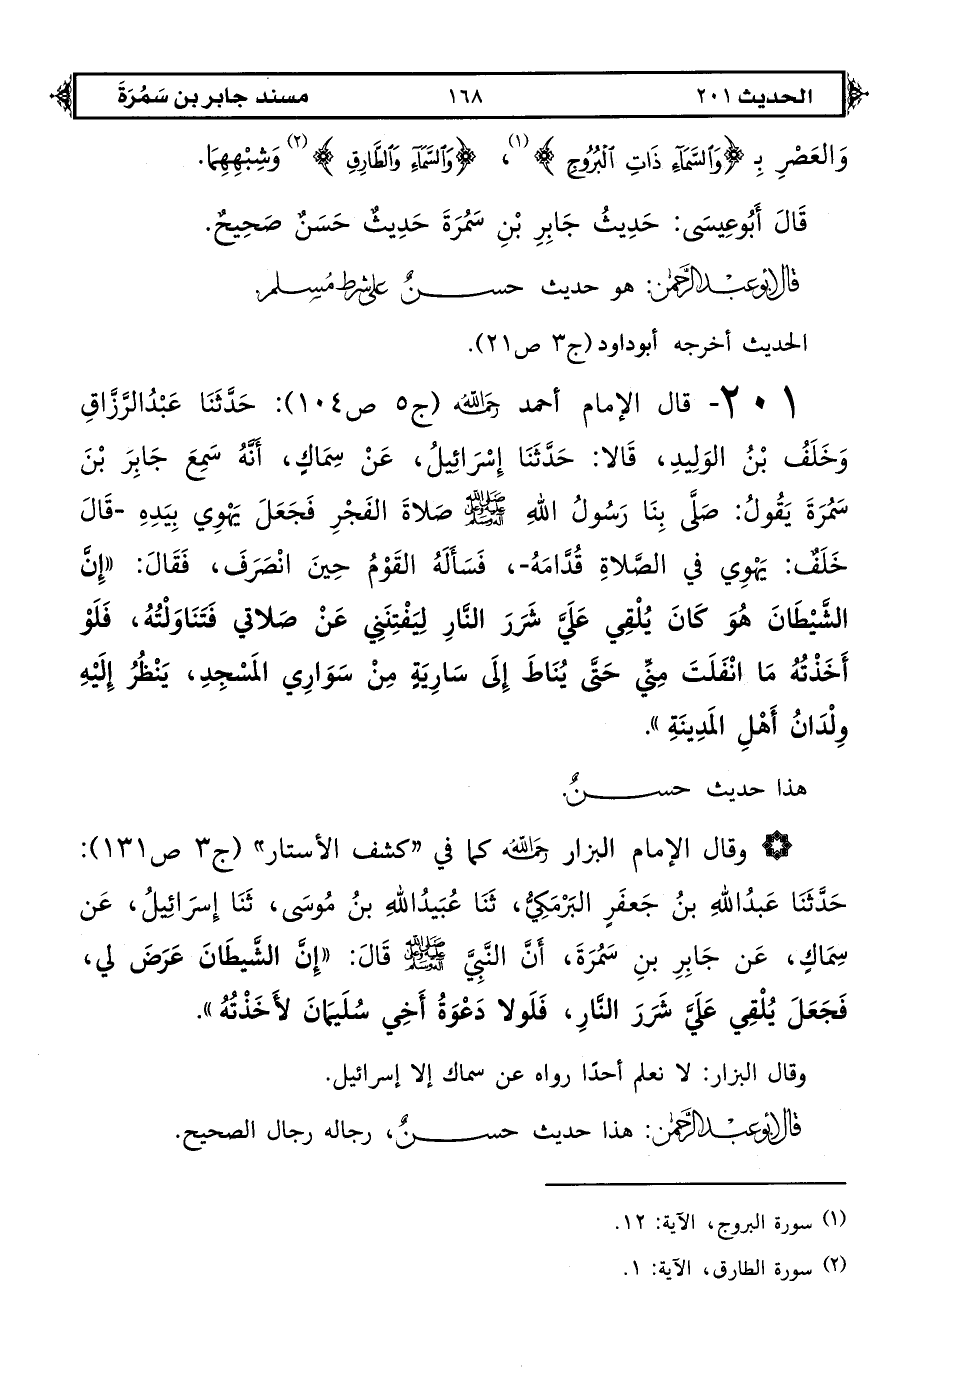 الحديث ٢٠١ ١٦٨ مسند جابر بن سَمُرَةَ
وَالعَصْرِ بِـ ﴿وَٱلسَّمَآءِ ذَاتِ ٱلْبُرُوجِ﴾(١)، ﴿وَٱلسَّمَآءِ وَٱلطَّارِقِ﴾(٢) وَشِبْهِهِمَا.
قَالَ أَبُوعِيسَى: حَدِيثُ جَابِرِ بْنِ سَمُرَةَ حَدِيثٌ حَسَنٌ صَحِيحٌ.
قال أبو عبد الرحمٰن: هو حديث حســـنٌ على شرط مُسلم.
الحديث أخرجه أبوداود (ج٣ ص٢١).
٢٠١- قال الإمام أحمد رحمه الله (ج٥ ص١٠٤): حَدَّثَنَا عَبْدُالرَّزَّاقِ
وَخَلَفُ بْنُ الوَلِيدِ، قَالا: حَدَّثَنَا إِسْرَائِيلُ، عَنْ سِمَاكٍ، أَنَّهُ سَمِعَ جَابِرَ بْنَ
سَمُرَةَ يَقُولُ: صَلَّى بِنَا رَسُولُ اللهِ ﷺ صَلاةَ الفَجْرِ فَجَعَلَ يَهْوِي بِيَدِهِ -قَالَ
خَلَفٌ: يَهْوِي فِي الصَّلاةِ قُدَّامَهُ-، فَسَأَلَهُ القَوْمُ حِينَ انْصَرَفَ، فَقَالَ: «إِنَّ
الشَّيْطَانَ هُوَ كَانَ يُلْقِي عَلَيَّ شَرَرَ النَّارِ لِيَفْتِنَنِي عَنْ صَلاتِي فَتَنَاوَلْتُهُ، فَلَوْ
أَخَذْتُهُ مَا انْفَلَتَ مِنِّي حَتَّى يُنَاطَ إِلَى سَارِيَةٍ مِنْ سَوَارِي المَسْجِدِ، يَنْظُرُ إِلَيْهِ
وِلْدَانُ أَهْلِ المَدِينَةِ».
هذا حديث حســـنٌ.
وقال الإمام البزار رحمه الله كما في "كشف الأستار" (ج٣ ص١٣١):
حَدَّثَنَا عَبدُاللهِ بنُ جَعفَرٍ البَرْمَكِيُّ، ثَنَا عُبَيدُاللهِ بنُ مُوسَى، ثَنَا إِسرَائِيلُ، عَن
سِمَاكٍ، عَن جَابِرِ بنِ سَمُرَةَ، أَنَّ النَّبِيَّ ﷺ قَالَ: «إِنَّ الشَّيطَانَ عَرَضَ لِي،
فَجَعَلَ يُلْقِي عَلَيَّ شَرَرَ النَّارِ، فَلَولا دَعْوَةُ أَخِي سُلَيمَانَ لأَخَذْتُهُ».
وقال البزار: لا نعلم أحدًا رواه عن سماك إلا إسرائيل.
قال أبو عبد الرحمٰن: هذا حديث حســـنٌ، رجاله رجال الصحيح.
(١) سورة البروج، الآية: ١٢.
(٢) سورة الطارق، الآية: ١.